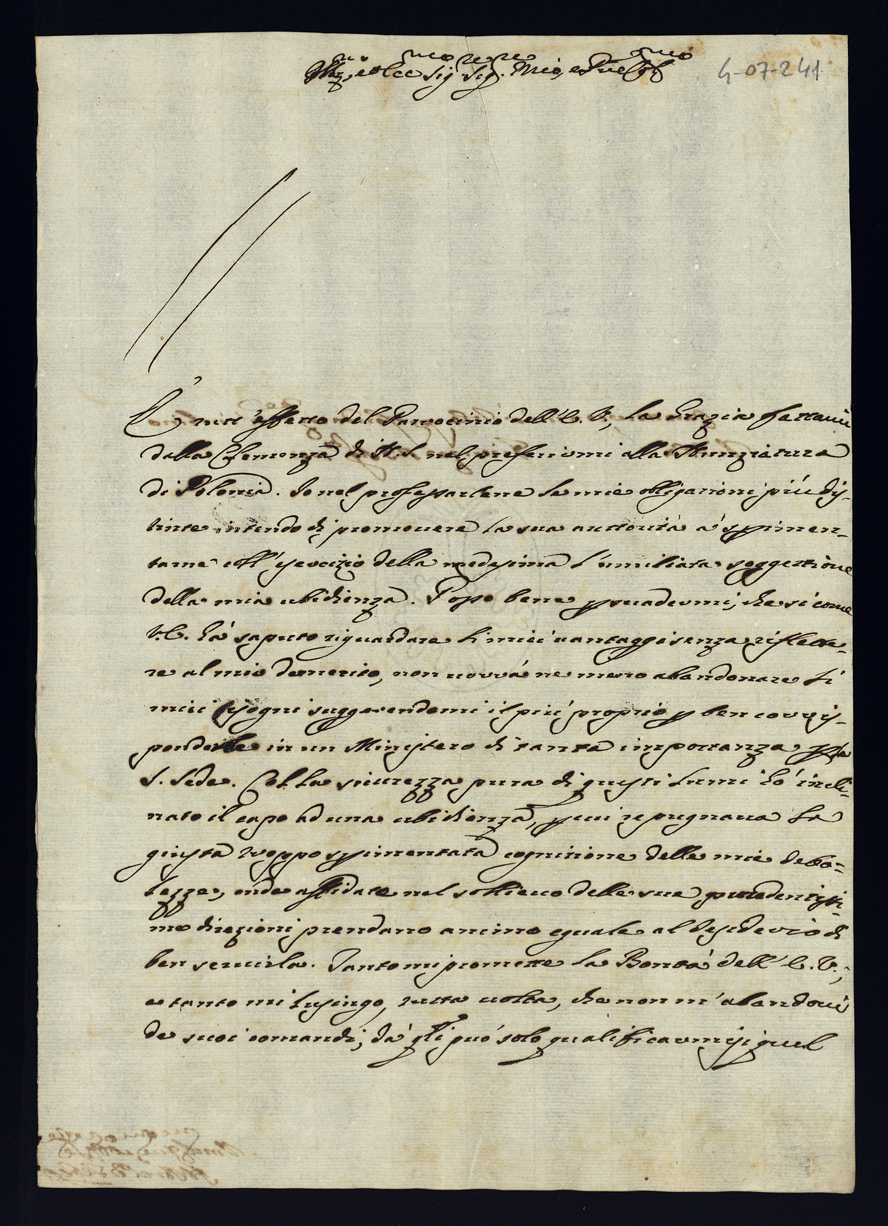 Illmo e Rmo Sig. Sig. Mio, e Pne Colmo
4-07-241
È mer' effetto del Patrocinio dell'E. V., la Grazia fattami
dalla Clemenza di N. S. nel preferirmi alla Nunziatura
di Polonia. Io nel professarlene le mie obligationi più dis-
tinte intendo di promouere la sua auttorità a' sperimen-
tarne coll' esercizio della medesima l'umiliata soggettione
della mia ubidienza. Posso bene persuadermi, che si come
V. E. hà saputo riguardare li miei uantaggi senza riflette-
re al mio demerito, non uorrà ne meno abandonare li
miei bisogni suggerendomi il più proprio per ben corris-
pondere in un Ministero di tanta importanza per la
S. Sede. Col la sicurezza pura di questi lumi hò incli-
nato il capo ad una ubidienza, per cui repugnaua la
giusta troppo sperimentata cognitione delle mie debo-
lezze, onde affidate nel sollieuo delle sue prudentissi-
me direzioni, prendano animo eguale al desiderio di
ben seruirla. Tanto mi promette la Bontà dell'E. V.,
e tanto mi lusingo, tutta uolta, che non m'abandoni
de suoi comandi, da' gli può solo qualificarmisi quel